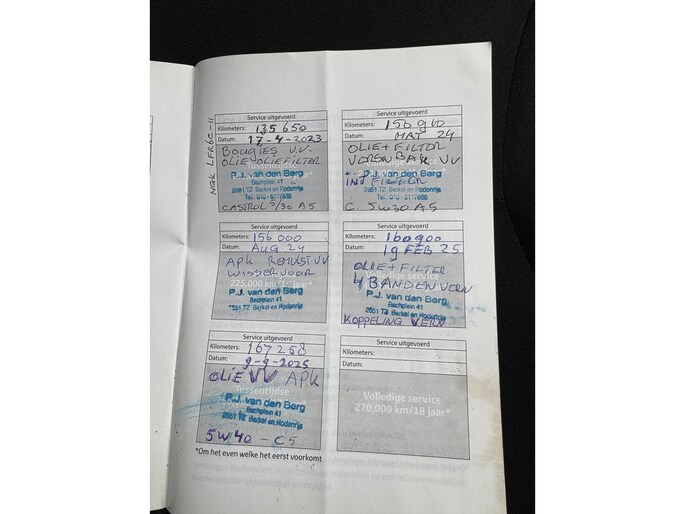 NGK LFR6C-11
Service uitgevoerd
Kilometers: 135650
Datum: 17-4-2023
BOUGIES V.V.
OLIE+OLIEFILTER
P.J. van den Berg
Bachplein 41
2651 TZ Berkel en Rodenrijs
Tel.: 010-5117855
CASTROL 5/30 A5
Service uitgevoerd
Kilometers:
Datum: 24
OLIE+FILTER
VV
P.J. van den Berg
Bachplein 41
2651 TZ Berkel en Rodenrijs
INT FILTER
C. 5W30 A5
Service uitgevoerd
Kilometers: 156000
Datum: AUG 24
APK REMVST VV
225.000 km/15 jaar*
P.J. van den Berg
Bachplein 41
2651 TZ Berkel en Rodenrijs
Service uitgevoerd
Kilometers: 160900
Datum: 19 FEB 25
OLIE+FILTER
Volledige service
4 BANDEN VERN
P.J. van den Berg
Bachplein 41
2651 TZ Berkel en Rodenrijs
KOPPELING VERN
Service uitgevoerd
Kilometers: 167258
Datum: 9-9-2025
OLIE VV APK
Tussentijdse
P.J. van den Berg
Bachplein 41
2651 TZ Berkel en Rodenrijs
5W40 - C5
Service uitgevoerd
Kilometers:
Datum:
Volledige service
270.000 km/18 jaar*
*Om het even welke het eerst voorkomt